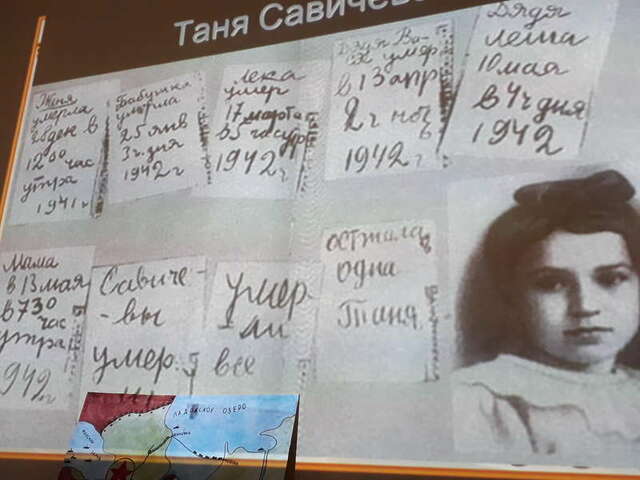 Таня Савичева
Женя
умерла
28 дек в
12 00 час
утра
1941 г
Бабушка
умерла
25 янв
3 ч. дня
1942 г
Лека
умер
17 марта
в 5 час утр
1942 г
Дядя Ва-
ся умер
в 13 апр
2 ч ноч
1942 г
Дядя
Леша
10 мая
в 4 ч дня
1942
Мама
в 13 мая
в 7 30
час
утра
1942 г
Савиче-
-вы
умер.
умер-
-ли
все
осталась
одна
Таня
ЛАДОЖСКОЕ ОЗЕРО